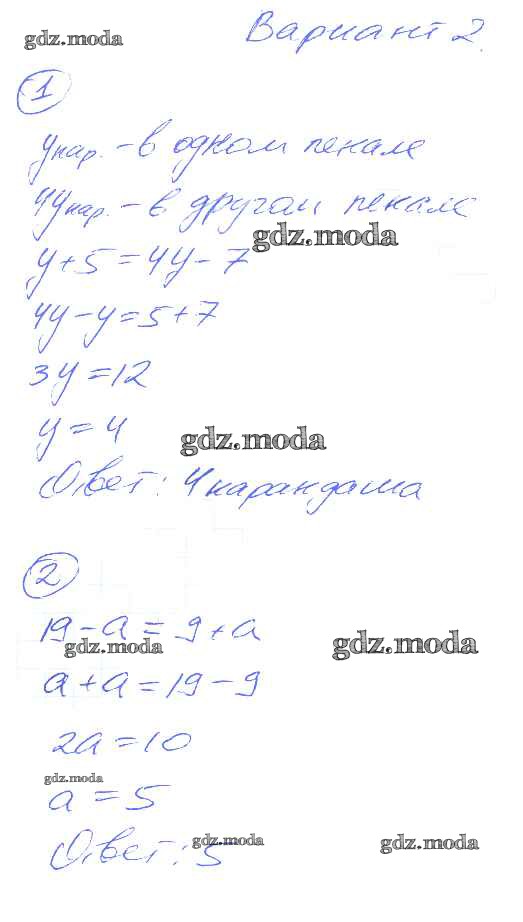 gdz.moda
Вариант 2.
1
y кар. - в одном пенале
4y кар. - в другом пенале
gdz.moda
y + 5 = 4y - 7
4y - y = 5 + 7
3y = 12
y = 4
gdz.moda
Ответ: 4 карандаша
2
19 - a = 9 + a
gdz.moda
gdz.moda
a + a = 19 - 9
2a = 10
gdz.moda
a = 5
Ответ: 5
gdz.moda
gdz.moda